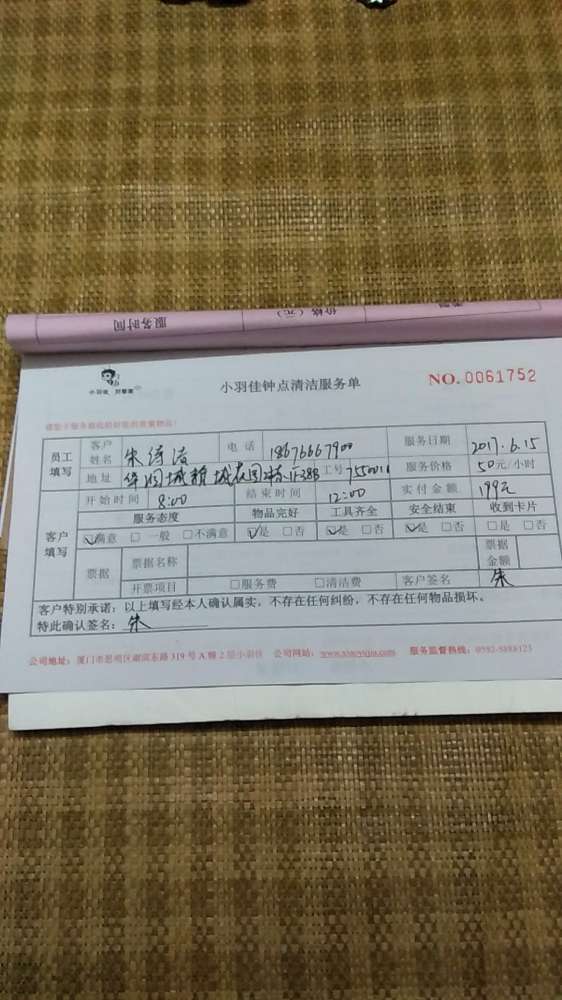 服务时间 价格（元）
小羽佳 刘馨蕙
小羽佳钟点清洁服务单 NO.0061752
员工填写 客户姓名 朱 电话 18676667900 服务日期 2017.6.15
地址 华润城 花园 工号 服务价格 50元/小时
开始时间 8:00 结束时间 12:00 实付金额 199元
客户填写 服务态度 物品完好 工具齐全 安全结束 收到卡片
☑满意 □一般 □不满意 ☑是 □否 ☑是 □否 ☑是 □否 □是 □否
票据 票据名称 票据金额
开票项目 □服务费 □清洁费 客户签名 朱
客户特别承诺：以上填写经本人确认属实，不存在任何纠纷，不存在任何物品损坏。
特此确认签名：朱
公司地址：厦门市思明区湖滨东路 319 号 A 幢 2 层小羽佳 公司网站：www.xiaoyujia.com 服务监督热线：0592-5888123